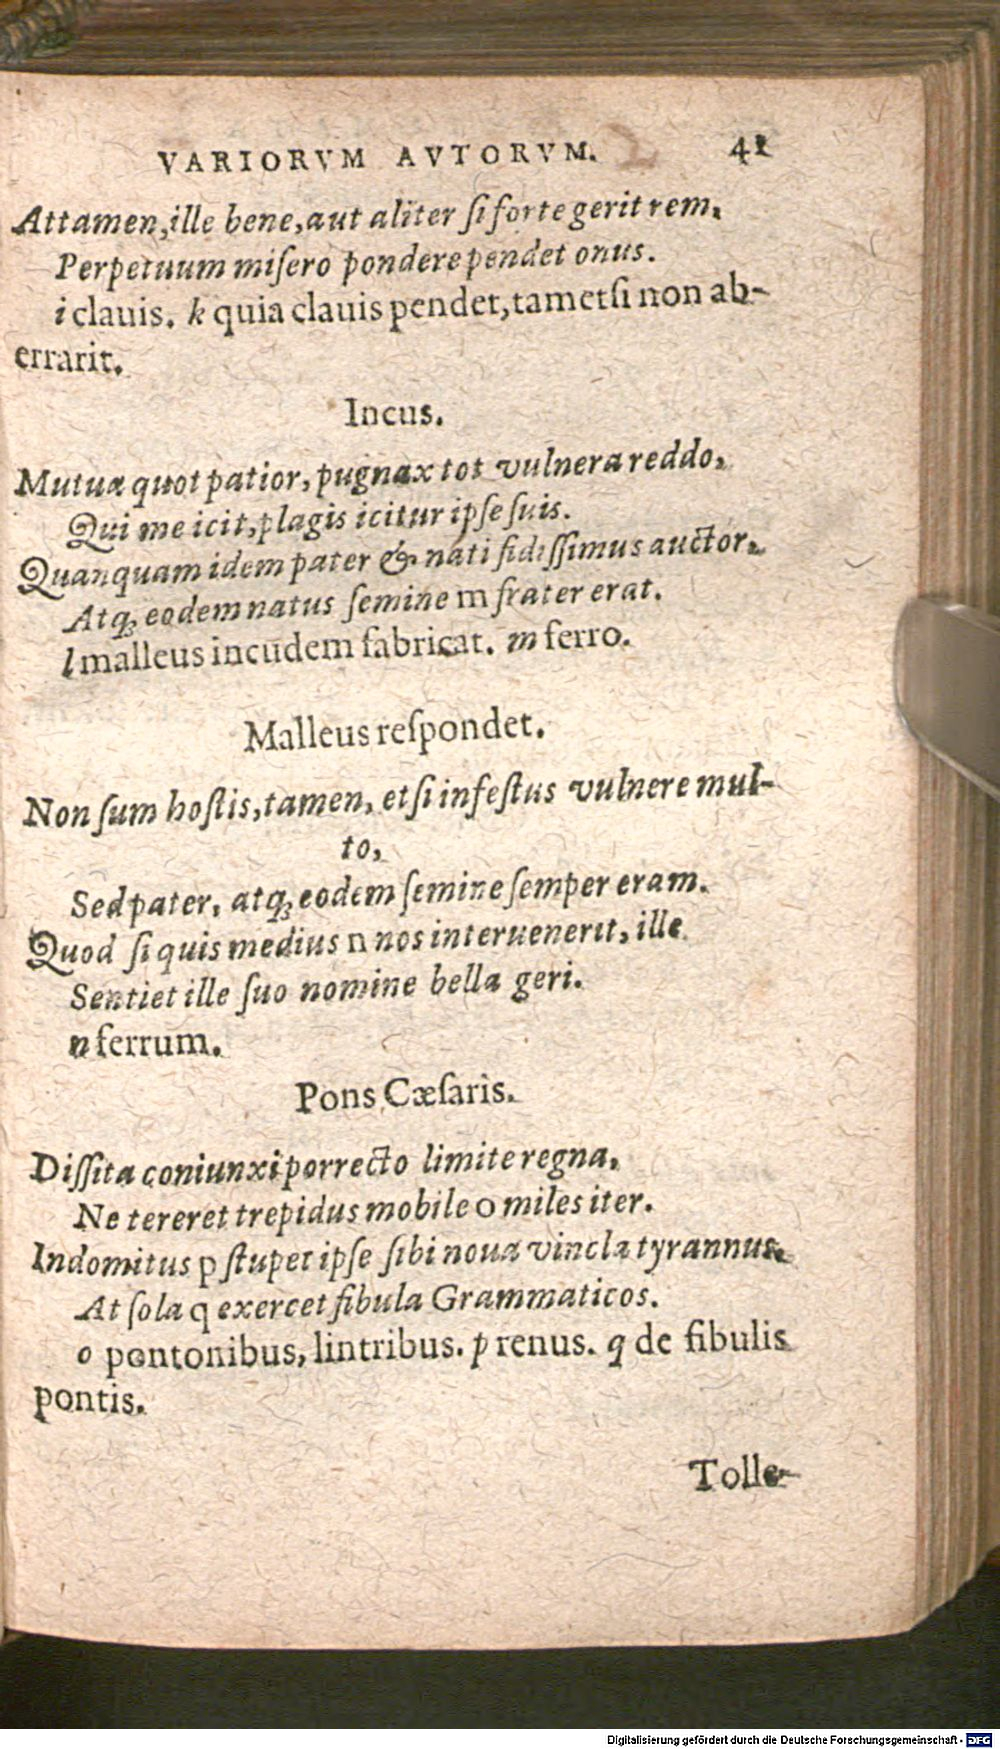 VARIORVM AVTORVM. 41
Attamen, ille bene, aut aliter ſi forte gerit rem,
Perpetuum miſero pondere pendet onus.
i clauis. k quia clauis pendet, tametsi non ab-
errarit.
Incus.
Mutua quot patior, pugnax tot vulnera reddo,
Qui me icit, plagis icitur ipſe ſuis.
Quanquam idem pater & nati fidiſſimus auctor,
Atq; eodem natus ſemine m frater erat.
l malleus incudem fabricat. m ferro.
Malleus reſpondet.
Non ſum hoſtis, tamen, etſi infeſtus vulnere mul-
to,
Sed pater, atq; eodem ſemine ſemper eram.
Quod ſi quis medius n nos interuenerit, ille
Sentiet ille ſuo nomine bella geri.
n ferrum.
Pons Cæſaris.
Diſſita coniunxi porrecto limite regna,
Ne tereret trepidus mobile o miles iter.
Indomitus p ſtupet ipſe ſibi noua vincla tyrannus,
At ſola q exercet fibula Grammaticos.
o pontonibus, lintribus. p renus. q de fibulis
pontis.
Tolle-
Digitalisierung gefördert durch die Deutsche Forschungsgemeinschaft - DFG